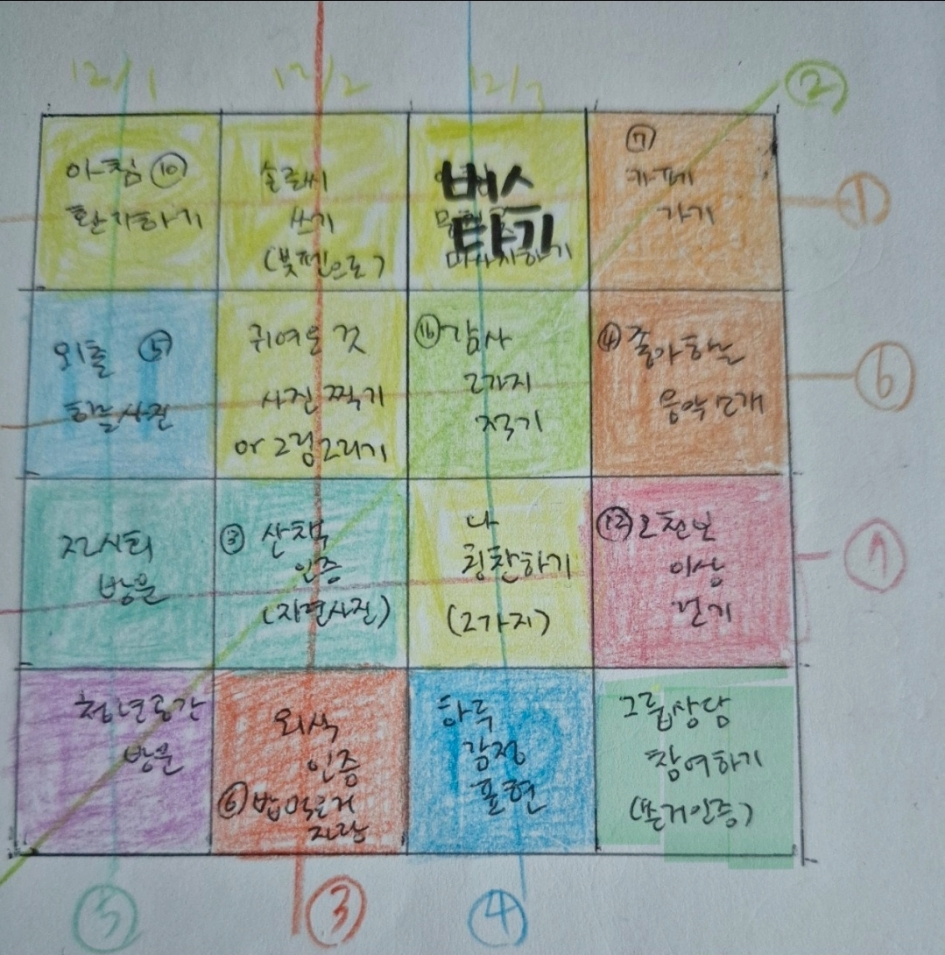 12/1 12/2 12/3
②
아침 ⑩
환자하기
손글씨
쓰기
(붓펜으로)
버스
타기
마사지하기
⑦
카페
가기
①
외출 ⑤
하늘사진
귀여운 것
사진 찍기
or 그림그리기
⑯ 감사
2가지
적기
④ 좋아하는
음악 소개
⑥
전시회
방문
③ 산책
인증
(자연사진)
나
칭찬하기
(2가지)
⑫ 오천보
이상
걷기
⑦
청년공간
방문
외식
인증
⑥ 밥먹은거
자랑
하루
감정
표현
그룹상담
참여하기
(쓴거인증)
⑤
③
④